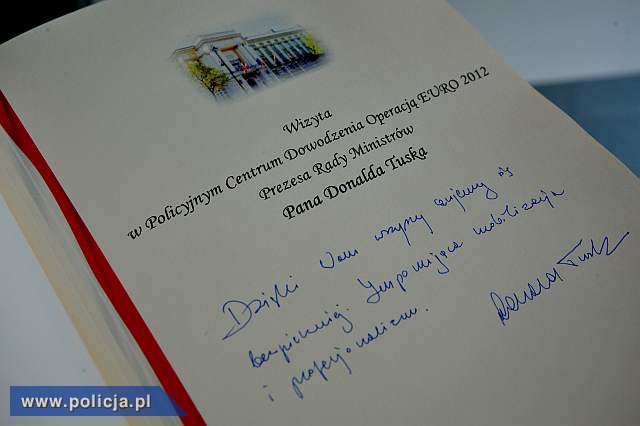 Wizyta
w Policyjnym Centrum Dowodzenia Operacją EURO 2012
Prezesa Rady Ministrów
Pana Donalda Tuska
Dzięki Wam wszyscy czujemy się
bezpieczniej. Imponująca mobilizacja
i profesjonalizm.
Donald Tusk
www.policja.pl